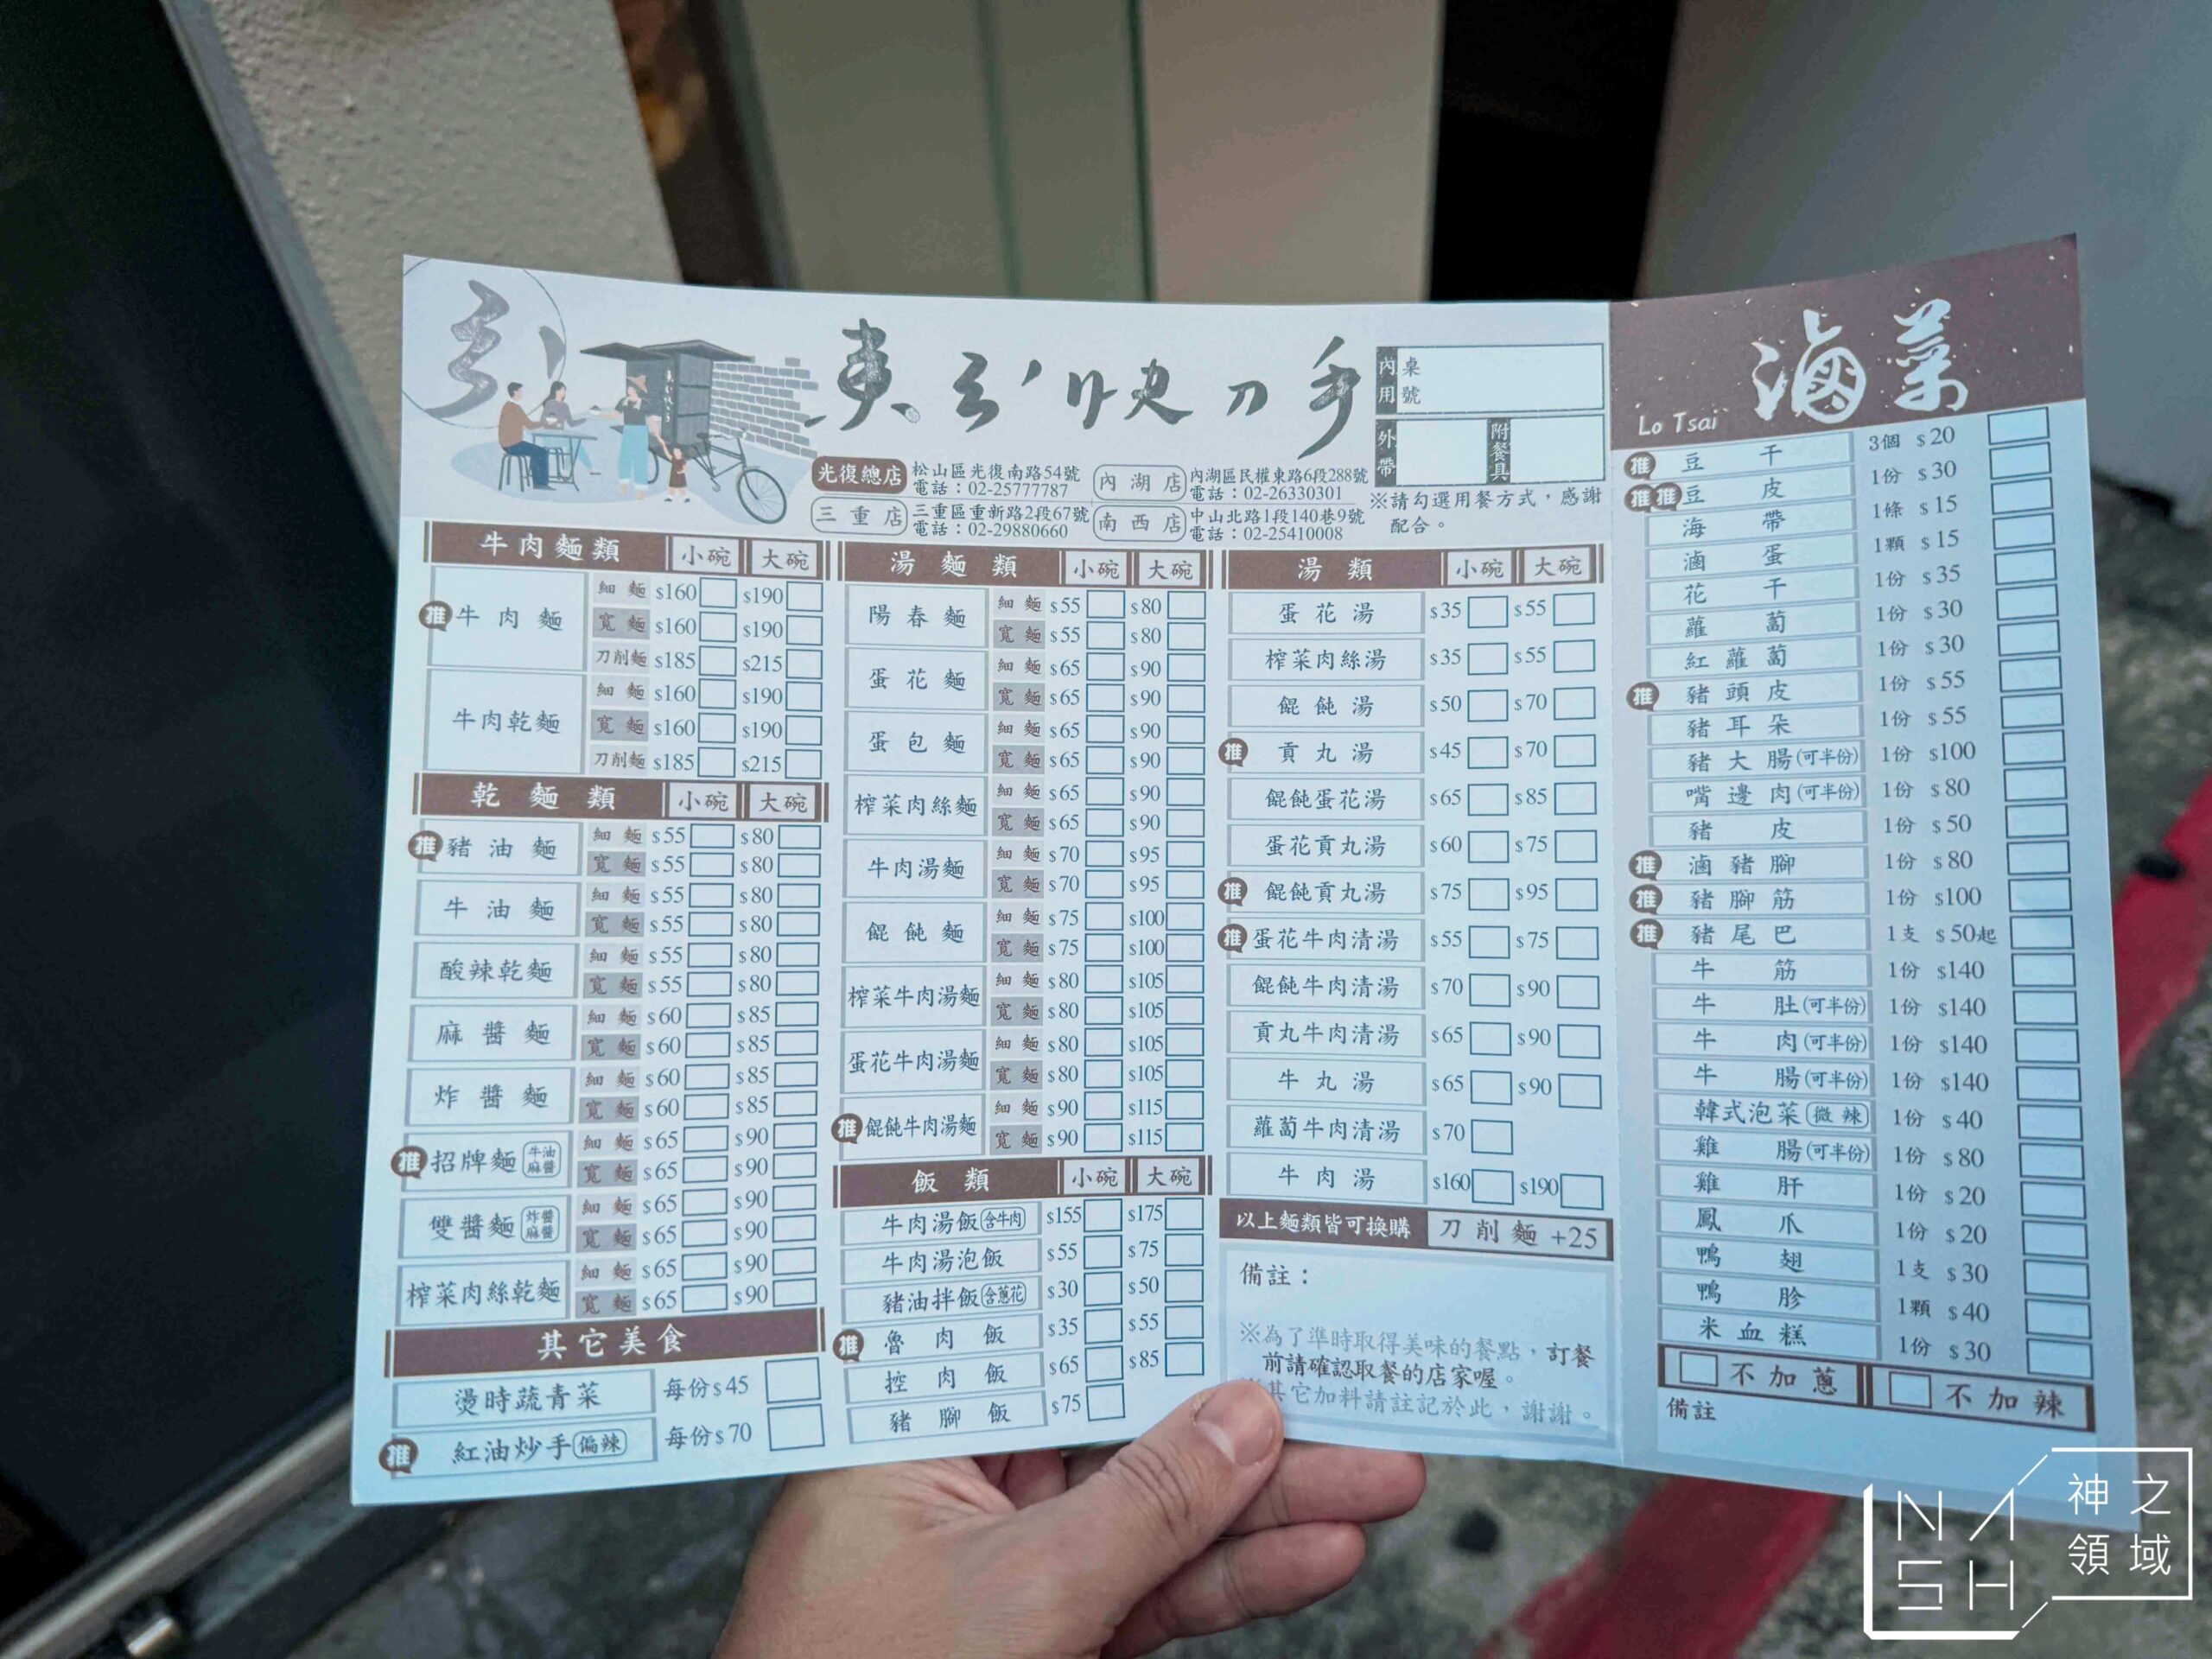 東引快刀手
內用 桌號
外帶 附餐具
※請勾選用餐方式，感謝配合。
光復總店 松山區光復南路54號
電話：02-25777787
內湖店 內湖區民權東路6段288號
電話：02-26330301
三重店 三重區重新路2段67號
電話：02-29880660
南西店 中山北路1段140巷9號
電話：02-25410008
牛肉麵類 小碗 大碗
推 牛肉麵 細麵 $160 $190
寬麵 $160 $190
刀削麵 $185 $215
牛肉乾麵 細麵 $160 $190
寬麵 $160 $190
刀削麵 $185 $215
乾麵類 小碗 大碗
推 豬油麵 細麵 $55 $80
寬麵 $55 $80
牛油麵 細麵 $55 $80
寬麵 $55 $80
酸辣乾麵 細麵 $55 $80
寬麵 $55 $80
麻醬麵 細麵 $60 $85
寬麵 $60 $85
炸醬麵 細麵 $60 $85
寬麵 $60 $85
推 招牌麵 牛油麻醬 細麵 $65 $90
寬麵 $65 $90
雙醬麵 炸醬麻醬 細麵 $65 $90
寬麵 $65 $90
榨菜肉絲乾麵 細麵 $65 $90
寬麵 $65 $90
其它美食
燙時蔬青菜 每份$45
推 紅油炒手 偏辣 每份$70
湯麵類 小碗 大碗
陽春麵 細麵 $55 $80
寬麵 $55 $80
蛋花麵 細麵 $65 $90
寬麵 $65 $90
蛋包麵 細麵 $65 $90
寬麵 $65 $90
榨菜肉絲麵 細麵 $65 $90
寬麵 $65 $90
牛肉湯麵 細麵 $70 $95
寬麵 $70 $95
餛飩麵 細麵 $75 $100
寬麵 $75 $100
榨菜牛肉湯麵 細麵 $80 $105
寬麵 $80 $105
蛋花牛肉湯麵 細麵 $80 $105
寬麵 $80 $105
推 餛飩牛肉湯麵 細麵 $90 $115
寬麵 $90 $115
飯類 小碗 大碗
牛肉湯飯(含牛肉) $155 $175
牛肉湯泡飯 $55 $75
豬油拌飯(含蔥花) $30 $50
推 魯肉飯 $35 $55
控肉飯 $65 $85
豬腳飯 $75
湯類 小碗 大碗
蛋花湯 $35 $55
榨菜肉絲湯 $35 $55
餛飩湯 $50 $70
推 貢丸湯 $45 $70
餛飩蛋花湯 $65 $85
蛋花貢丸湯 $60 $75
推 餛飩貢丸湯 $75 $95
推 蛋花牛肉清湯 $55 $75
餛飩牛肉清湯 $70 $90
貢丸牛肉清湯 $65 $90
牛丸湯 $65 $90
蘿蔔牛肉清湯 $70
牛肉湯 $160 $190
以上麵類皆可換購 刀削麵 +25
備註：
※為了準時取得美味的餐點，訂餐
前請確認取餐的店家喔。
其它加料請註記於此，謝謝。
滷菜
Lo Tsai
推 豆干 3個 $20
推推 豆皮 1份 $30
海帶 1條 $15
滷蛋 1顆 $15
花干 1份 $35
蘿蔔 1份 $30
紅蘿蔔 1份 $30
推 豬頭皮 1份 $55
豬耳朵 1份 $55
豬大腸(可半份) 1份 $100
嘴邊肉(可半份) 1份 $80
豬皮 1份 $50
推 滷豬腳 1份 $80
推 豬腳筋 1份 $100
推 豬尾巴 1支 $50起
牛筋 1份 $140
牛肚(可半份) 1份 $140
牛肉(可半份) 1份 $140
牛腸(可半份) 1份 $140
韓式泡菜(微辣) 1份 $40
雞腸(可半份) 1份 $80
雞肝 1份 $20
鳳爪 1份 $20
鴨翅 1支 $30
鴨胗 1顆 $40
米血糕 1份 $30
不加蔥 不加辣
備註
NASH
神之領域